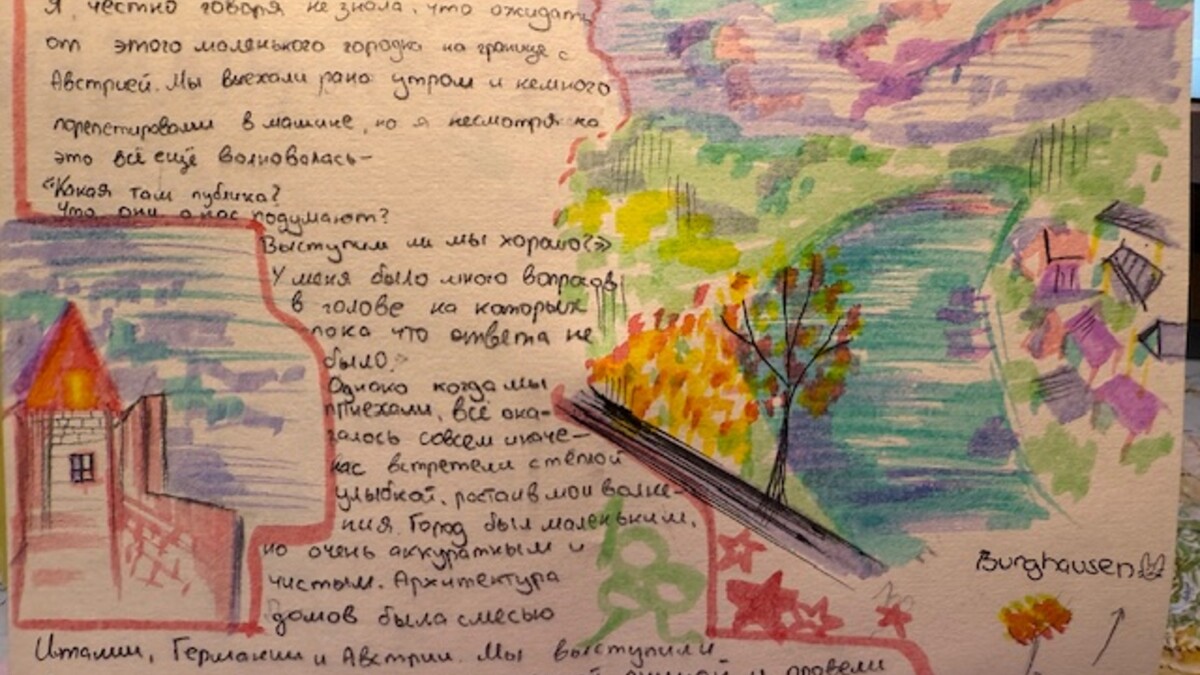 Я, честно говоря не знала, что ожидать
от этого маленького городка на границе с
Австрией. Мы выехали рано утром и немного
порепетировали в машине, но я несмотря на
это всё ещё волновалась–
"Какая там публика?
Что они о нас подумают?
Выступим ли мы хорошо?»
У меня было много вопросов
в голове на которых
пока что ответа не
было.
Однако когда мы
приехали, всё ока-
залось совсем иначе–
нас встретели с тёплой
улыбкой, растаив мои волне-
ния. Город был маленьким,
но очень аккуратным и
чистым. Архитектура
домов была смесью
Италии, Германии и Австрии. Мы выступили
и провели
Burghausen